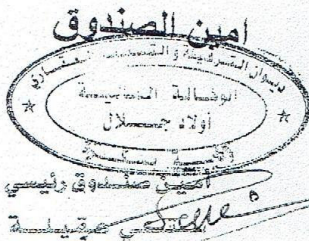 امين الصندوق
ديوان الترقية و التسيير العقاري
الوكالة المحلية
اولاد جلال
أمين صندوق رئيسي